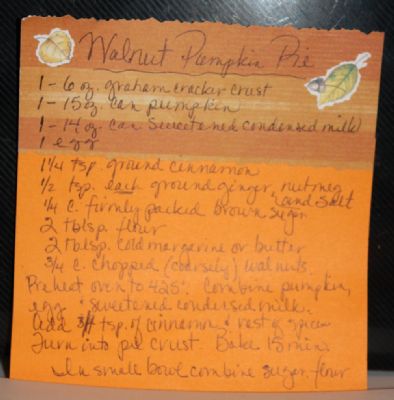 Walnut Pumpkin Pie
1 - 6 oz. graham cracker crust
1 - 15 oz. can pumpkin
1 - 14 oz. can sweetened condensed milk
1 egg
1 1/4 tsp. ground cinnamon
1/2 tsp. each ground ginger, nutmeg and salt
1/4 c. firmly packed brown sugar
2 tblsp. flour
2 tblsp. cold margarine or butter
3/4 c. chopped (coarsely) walnuts.
Preheat oven to 425°. Combine pumpkin,
egg & sweetened condensed milk.
Add 3/4 tsp. of cinnamon & rest of spices
Turn into pie crust. Bake 15 min.
In small bowl combine sugar, flour